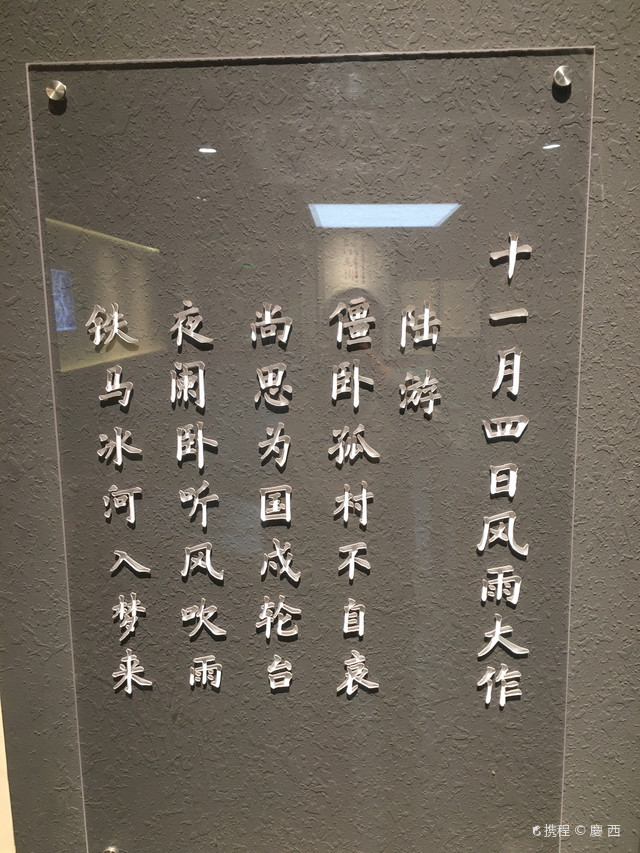 十一月四日风雨大作
陆游
僵卧孤村不自哀
尚思为国戍轮台
夜阑卧听风吹雨
铁马冰河入梦来
携程 © 慶西